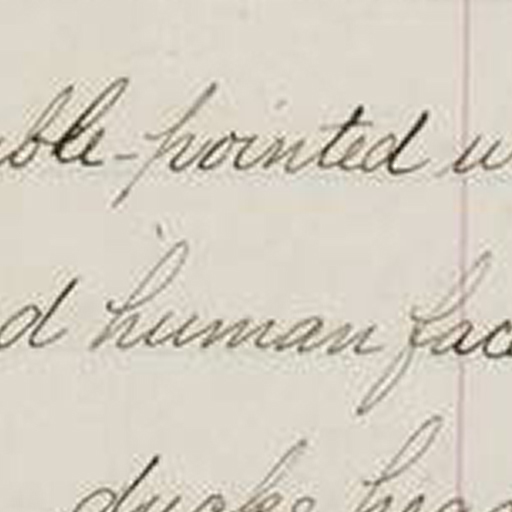 ble-pointed w
d human fac
ducks head